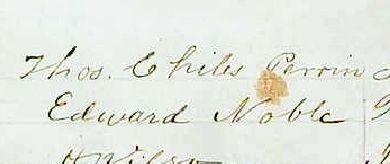 Thos. Chiles Perrin
Edward Noble